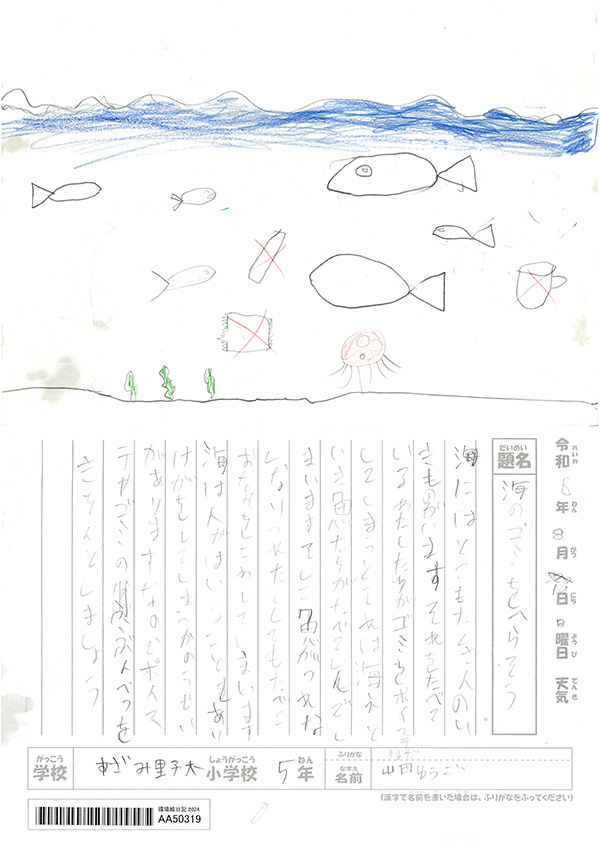 令和 年 8月 日 日曜日 天気
れいわ ねん がつ にち ようび てんき
だいめい
題名 海のゴミをへらそう
海にはとてもたくさんのい
きものがいます それをたべて
いるわたしたちがゴミをポイす
してしまっ 海
いき魚たちがたべてしんでし
まいます 魚がつれな
なりつれたとしてもたべ
おなかをこわしてしまいます
海は人がはいることもあい
けがをしてしまうかのうせい
がありますなのでポイス
テやゴミの ぶんべつを
きちんとしましょう
がっこう 学校 あざみ野 しょうがっこう 小学校 5 ねん 年
ふりがな
なまえ 名前 山田ゆうご
(漢字で名前を書いた場合は、ふりがなをふってください)
環境絵日記 2024
AA50319